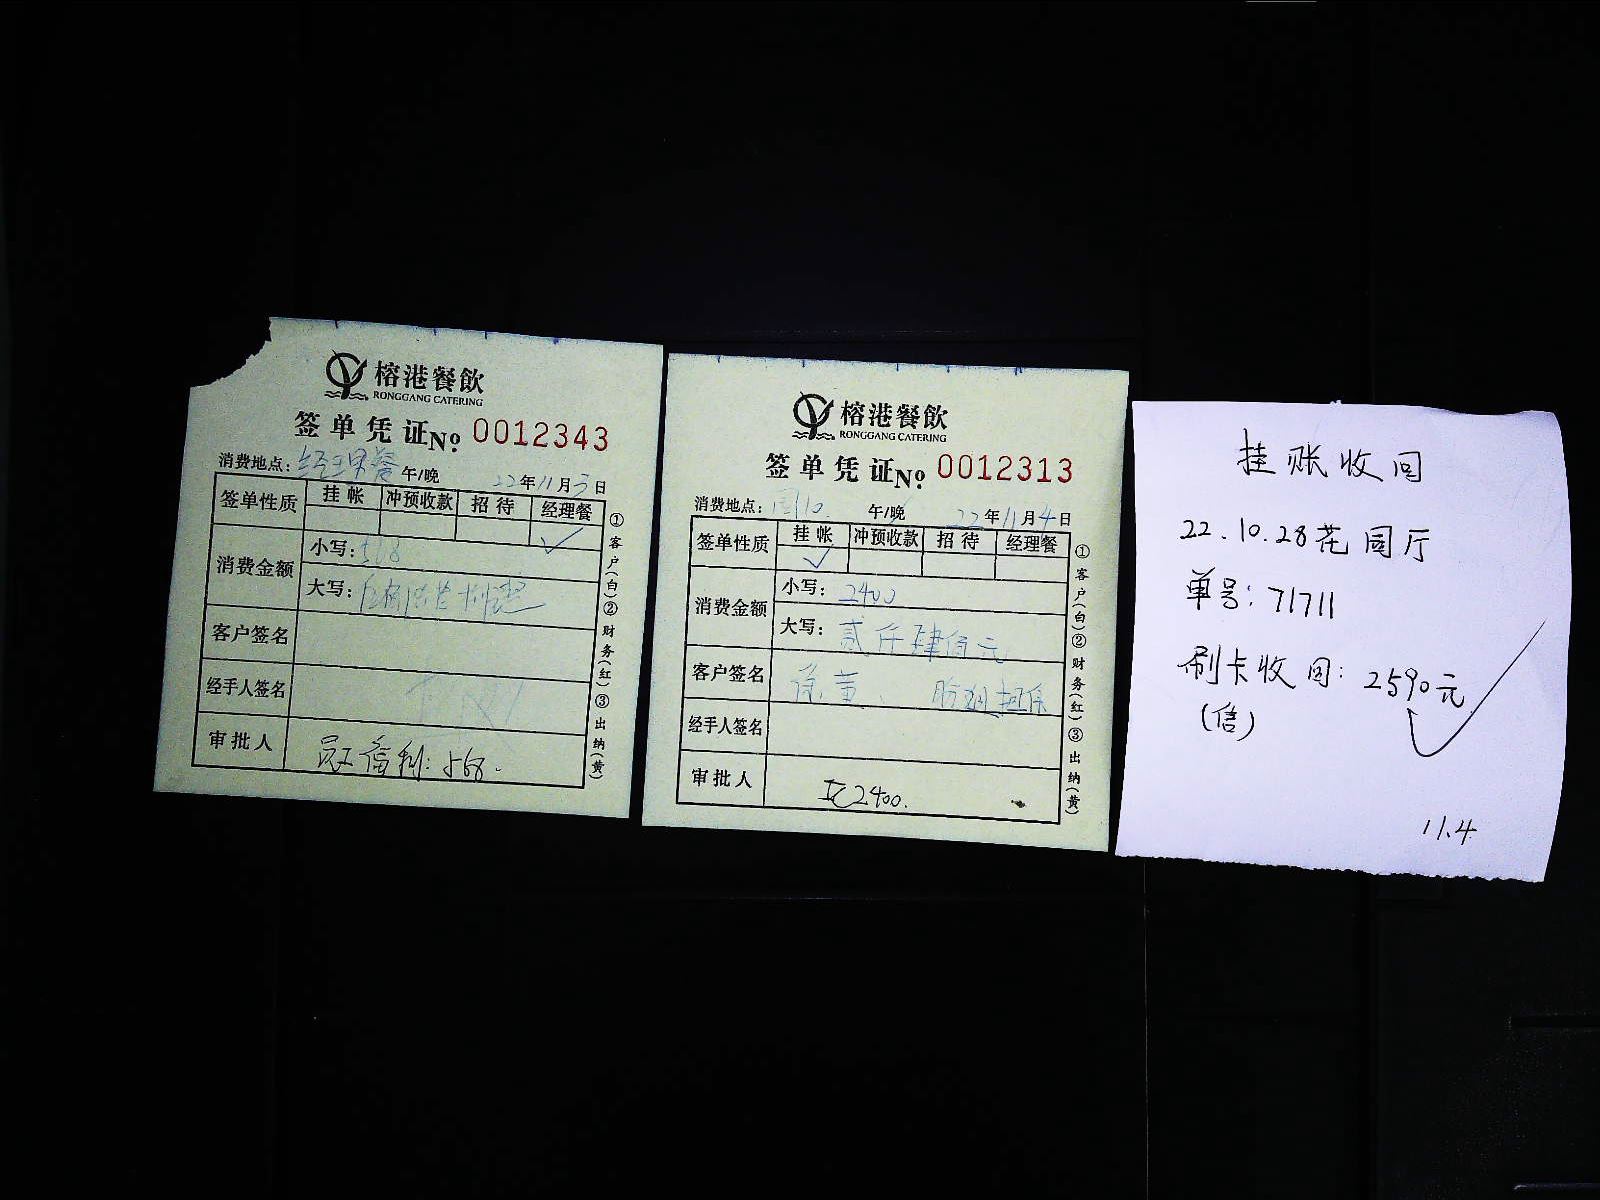 榕港餐飲
RONGGANG CATERING
签单凭证 No. 0012343
消费地点：经理餐 午/晚 22年11月3日
签单性质 挂帐 冲预收款 招待 经理餐
✓
消费金额 小写：568
大写：
客户签名
经手人签名
审批人 员工福利：568.
①客户(白)②财务(红)③出纳(黄)
榕港餐飲
RONGGANG CATERING
签单凭证 No. 0012313
消费地点： 午/晚 22年11月4日
签单性质 挂帐 冲预收款 招待 经理餐
✓
消费金额 小写：2400
大写：贰仟肆佰元
客户签名 徐董、 担保
经手人签名
审批人 2400.
①客户(白)②财务(红)③出纳(黄)
挂账收回
22.10.28花园厅
单号：71711
刷卡收回：2590元
(信)
11.4